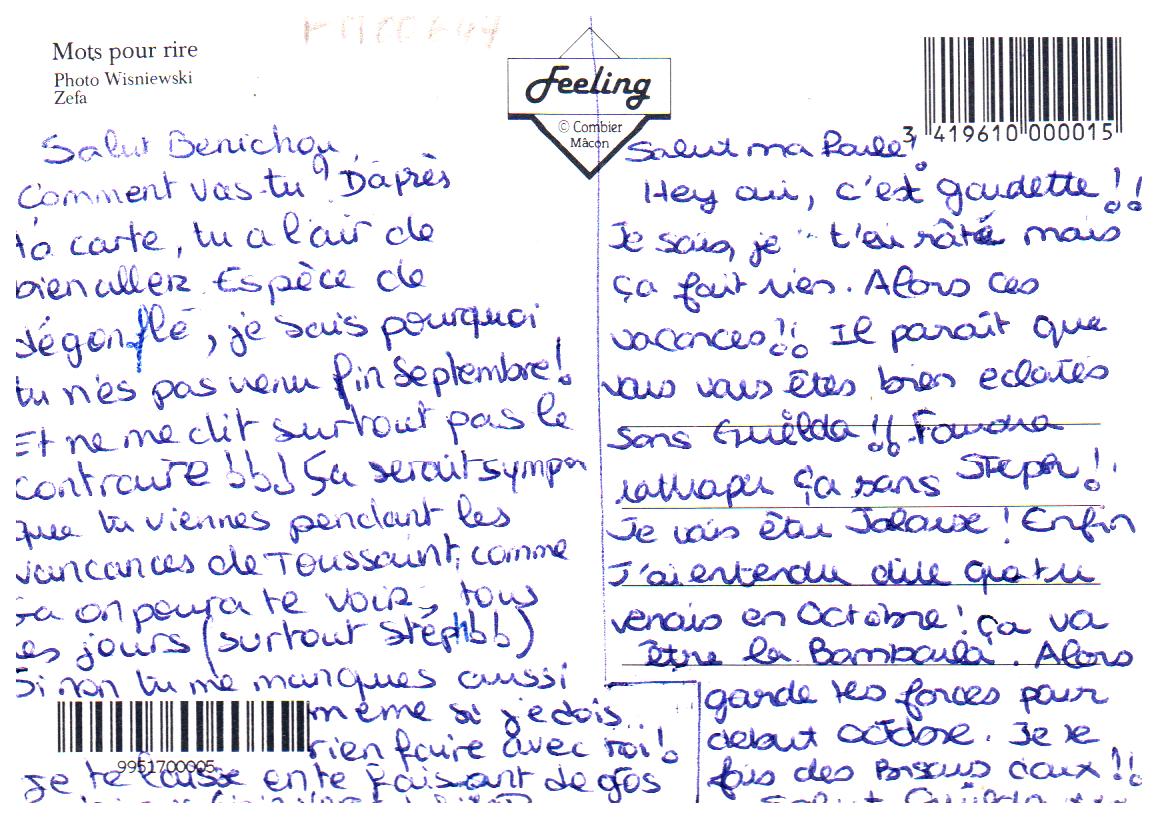 Mots pour rire
Photo Wisniewski
Zefa
Feeling
© Combier
Mâcon
3 419610 000015
Salut Benichou,
Comment vas-tu ? D'après
ta carte, tu a l'air de
bien allez. Espèce de
dégonflé, je sais pourquoi
tu n'es pas venu fin Septembre!
Et ne me dit surtout pas le
contraire !!! Ça serait sympa
que tu viennes pendant les
vancances de Toussaint, comme
ça on poura te voir, tous
les jours (surtout Stéph !!)
Si non tu me manques aussi
même si je dois..
rien faire avec toi!
9951700005
Je te laisse en te faisant de gos
Salut ma Poule!
Hey oui, c'est gaudette!!
Je sais, je t'ai râté mais
ça fait rien. Alors ces
vacances!! Il paraît que
vous vous êtes bien eclatés
sans Guilda!! Faudra
rattraper ça sans Steph!
Je vais être Jalouse! Enfin
J'ai entendu dire que tu
venais en Octobre! ça va
être la Bamboula. Alors
garde tes forces pour
debut octobre. Je te
fais des Bisous doux!!
Salut